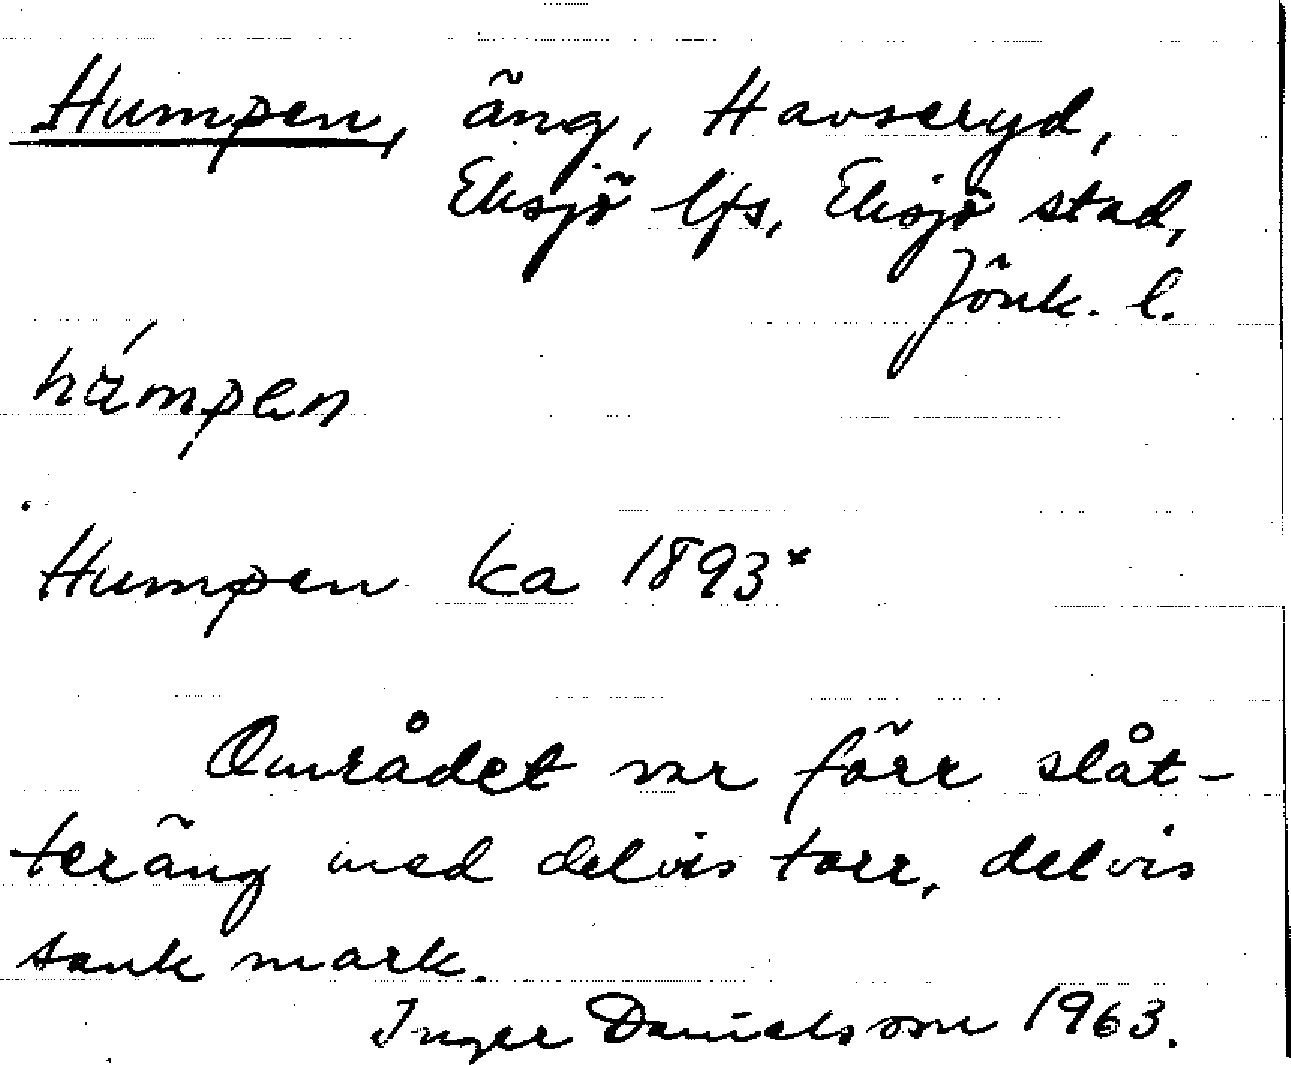 Humpen, äng, Havseryd,
Eksjö lfs, Eksjö stad,
Jönk. l.
húmpən
Humpen ka 1893*
Området var förr slåt-
teräng med delvis torr, delvis
sank mark.
Inger Danielsson 1963.